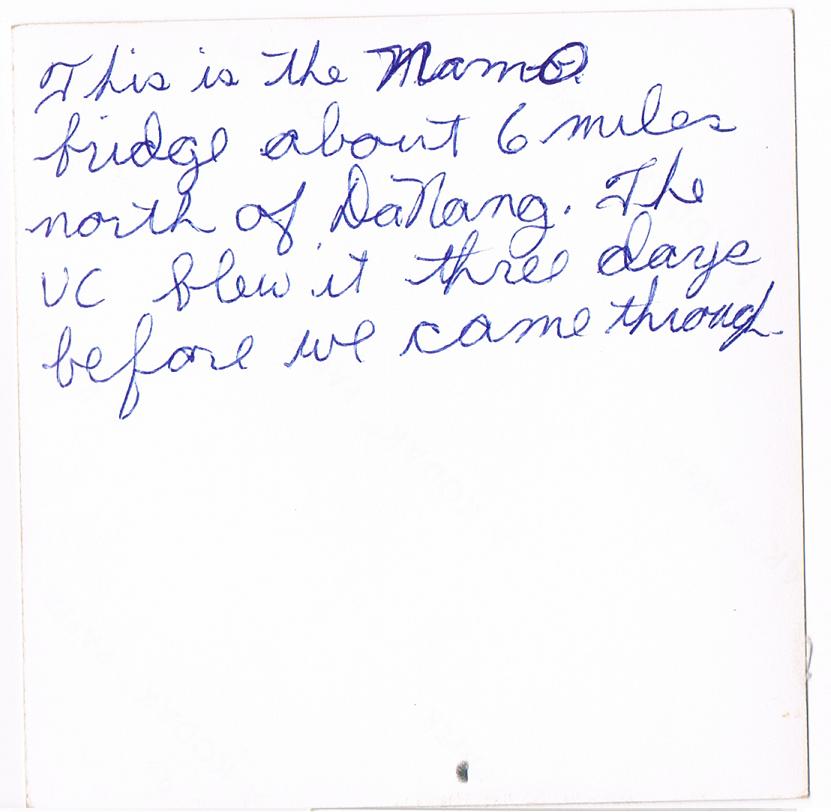 This is the Mamo
bridge about 6 miles
north of DaNang. The
VC blew it three days
before we came through